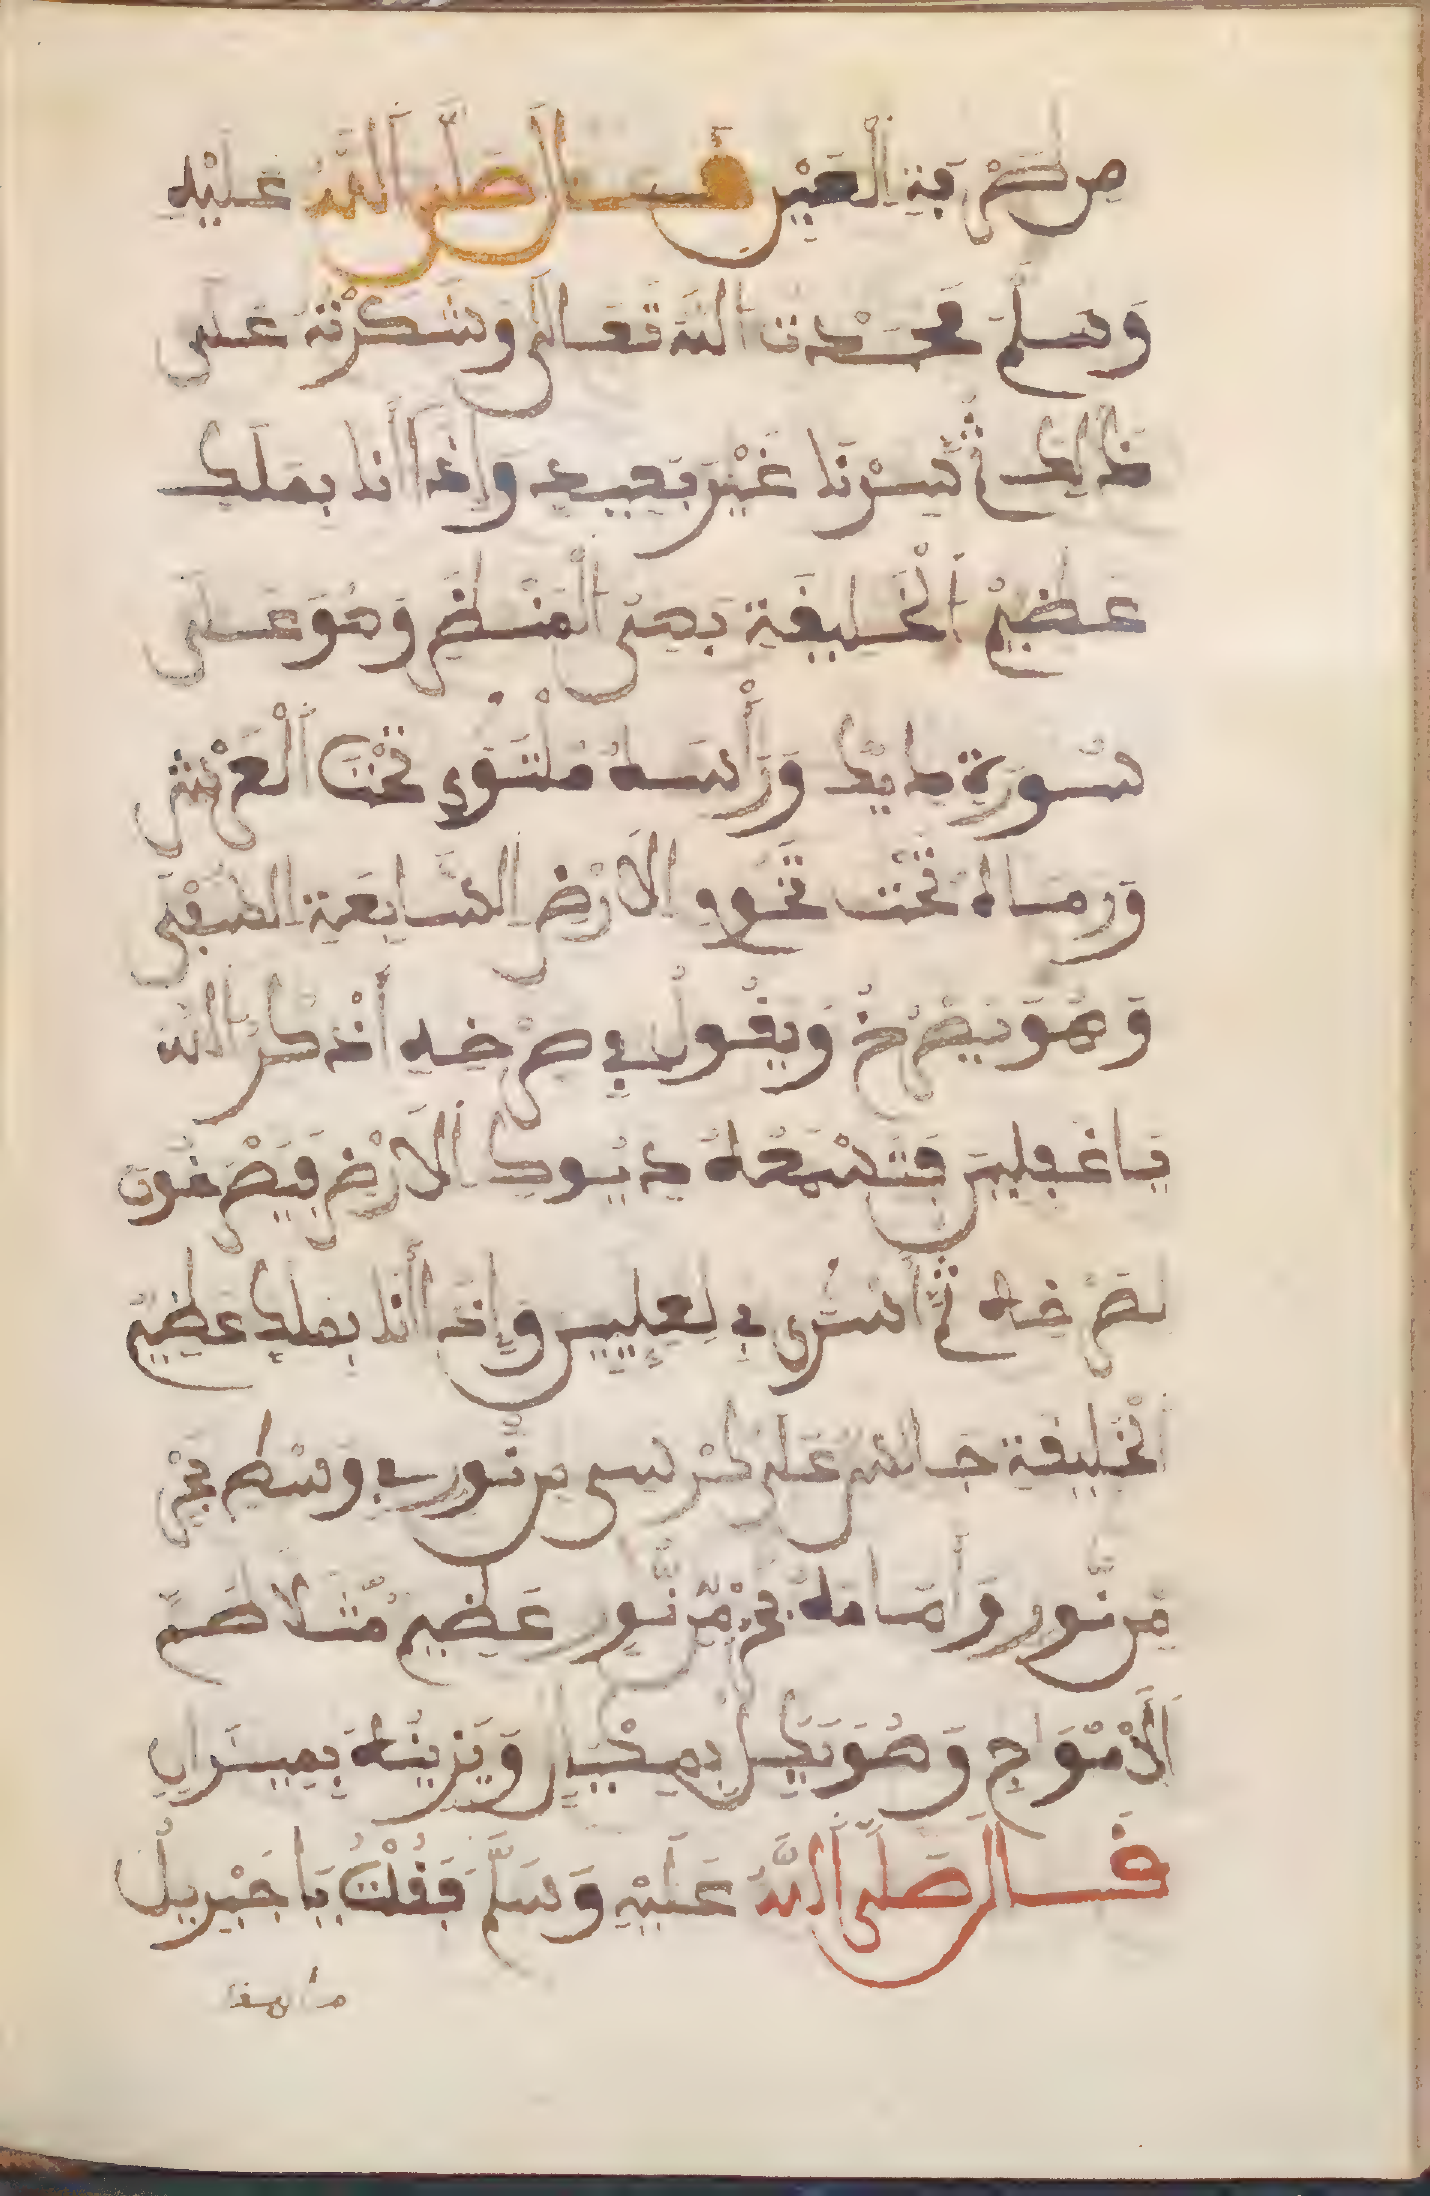 مِن طَرْفَةِ الْعَيْنِ قَالَ صَلَّى اللَّهُ عَلَيْهِ
وَسَلَّمَ فَحَمِدْتُ اللَّهَ تَعَالَى وَشَكَرْتُهُ عَلَى
ذَالِكَ ثُمَّ سِرْنَا غَيْرَ بَعِيدٍ وَإِذَا أَنَا بِمَلَكٍ
عَظِيمِ الْخَلِيفَةِ بَهِيِّ الْمَنْظَرِ وَهُوَ عَلَى
سُورَةِ دِيكٍ وَرَأْسُهُ مُلْتَوِي تَحْتَ الْعَرْشِ
وَرِجْلَاهُ تَحْتَ تُخُومِ الْأَرْضِ السَّابِعَةِ السُّفْلَى
وَهُوَ يَصْرُخُ وَيَقُولُ فِي صَرْخِهِ أُذْكُرُوا اللَّهَ
يَا غَافِلِينَ فَتَسْمَعُهُ دُيُوكُ الْأَرْضِ فَيَصْرَخُونَ
لِصَرْخِهِ ثُمَّ أُسْرِيَ بِي لِعِلِّيِّينَ وَإِذَا أَنَا بِمَلَكٍ عَظِيمِ
الْخَلِيفَةِ جَالِسٌ عَلَى كُرْسِيٍّ مِن نُّورٍ فِي وَسْطِ بَحْرٍ
مِّن نُّورٍ وَأَمَامَهُ بَحْرٌ مِّن نُّورٍ عَظِيمٍ مُّتَلَاطِمِ
الْأَمْوَاجِ وَهُوَ يَكِيلُ بِمِكْيَالٍ وَيَزِينُهُ بِمِيزَانٍ
قَالَ صَلَّى اللَّهُ عَلَيْهِ وَسَلَّمَ فَقُلْتُ يَا جِبْرِيلُ
ما هذا